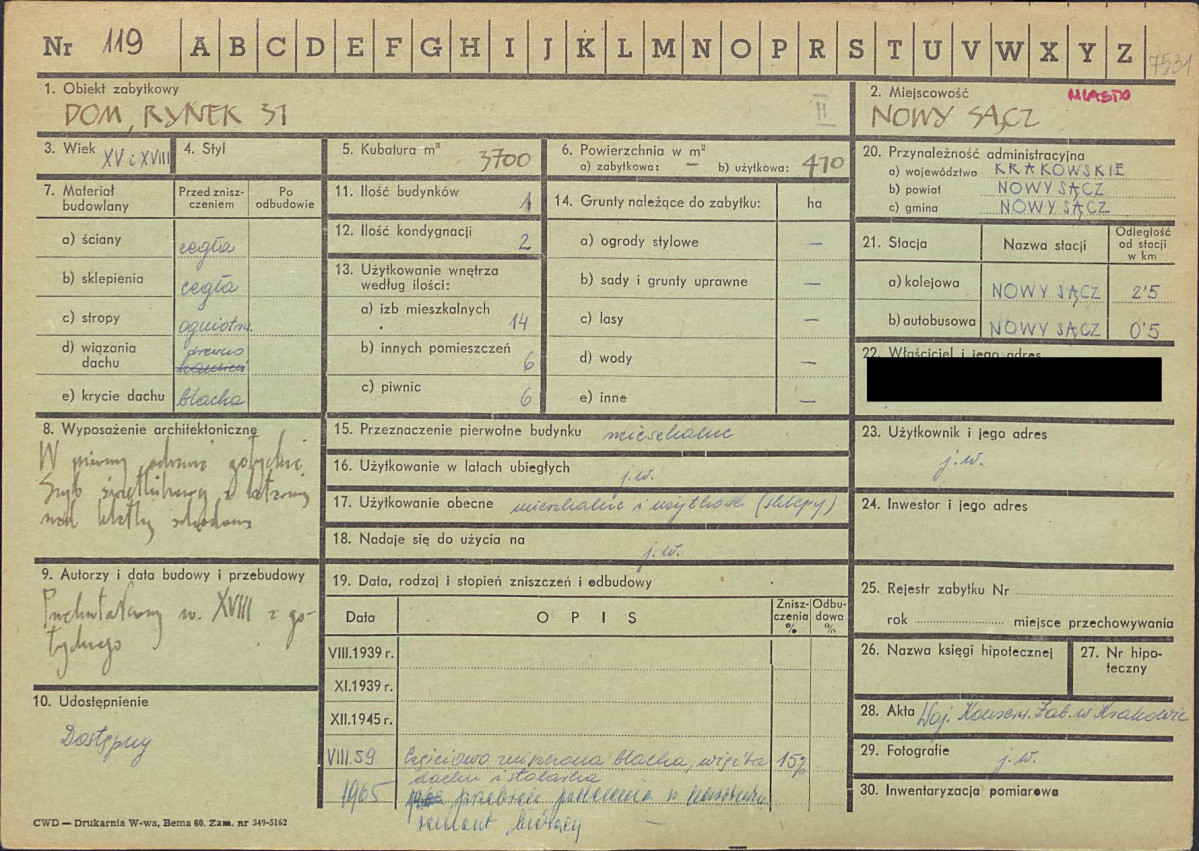 Nr 119 A B C D E F G H I J K L M N O P R S T U V W X Y Z 7531
1. Obiekt zabytkowy
DOM, RYNEK 31
II
2. Miejscowość
MIASTO
NOWY SĄCZ
3. Wiek XV i XVIII
4. Styl
5. Kubatura m³ 3700
6. Powierzchnia w m²
a) zabytkowa: — b) użytkowa: 410
20. Przynależność administracyjna
a) województwo KRAKOWSKIE
b) powiat NOWY SĄCZ
c) gmina NOWY SĄCZ
7. Materiał budowlany
Przed zniszczeniem
Po odbudowie
a) ściany cegła
b) sklepienia cegła
c) stropy ogniotrw.
d) wiązania dachu drewno
e) krycie dachu blacha
11. Ilość budynków 1
12. Ilość kondygnacji 2
13. Użytkowanie wnętrza
według ilości:
a) izb mieszkalnych 14
b) innych pomieszczeń 6
c) piwnic 6
14. Grunty należące do zabytku: ha
a) ogrody stylowe —
b) sady i grunty uprawne —
c) lasy —
d) wody —
e) inne —
21. Stacja
Nazwa stacji
Odległość od stacji w km
a) kolejowa NOWY SĄCZ 2'5
b) autobusowa NOWY SĄCZ 0'5
22. Właściciel i jego adres
8. Wyposażenie architektoniczne
W piwnicy odrzwia gotyckie.
Szyb świetlikowy z latarnią
nad klatką schodową
15. Przeznaczenie pierwotne budynku mieszkalne
16. Użytkowanie w latach ubiegłych j.w.
17. Użytkowanie obecne mieszkalne i użytkowe (sklepy)
18. Nadaje się do użycia na j.w.
23. Użytkownik i jego adres
j.w.
24. Inwestor i jego adres
9. Autorzy i data budowy i przebudowy
w. XVIII z go-
tyckiego
10. Udostępnienie
Dostępny
19. Data, rodzaj i stopień zniszczeń i odbudowy
Data
OPIS
Zniszczenia %
Odbudowa %
VIII.1939 r.
XI.1939 r.
XII.1945 r.
VIII.59 Częściowo zniszczona blacha, więźba 15%
dachu i stolarka
1965
remont bieżący —
25. Rejestr zabytku Nr
rok miejsce przechowywania
26. Nazwa księgi hipotecznej
27. Nr hipoteczny
28. Akta Woj. Konserw. Zab. w Krakowie
29. Fotografie j.w.
30. Inwentaryzacja pomiarowa
CWD — Drukarnia W-wa, Bema 60. Zam. nr 349-5162